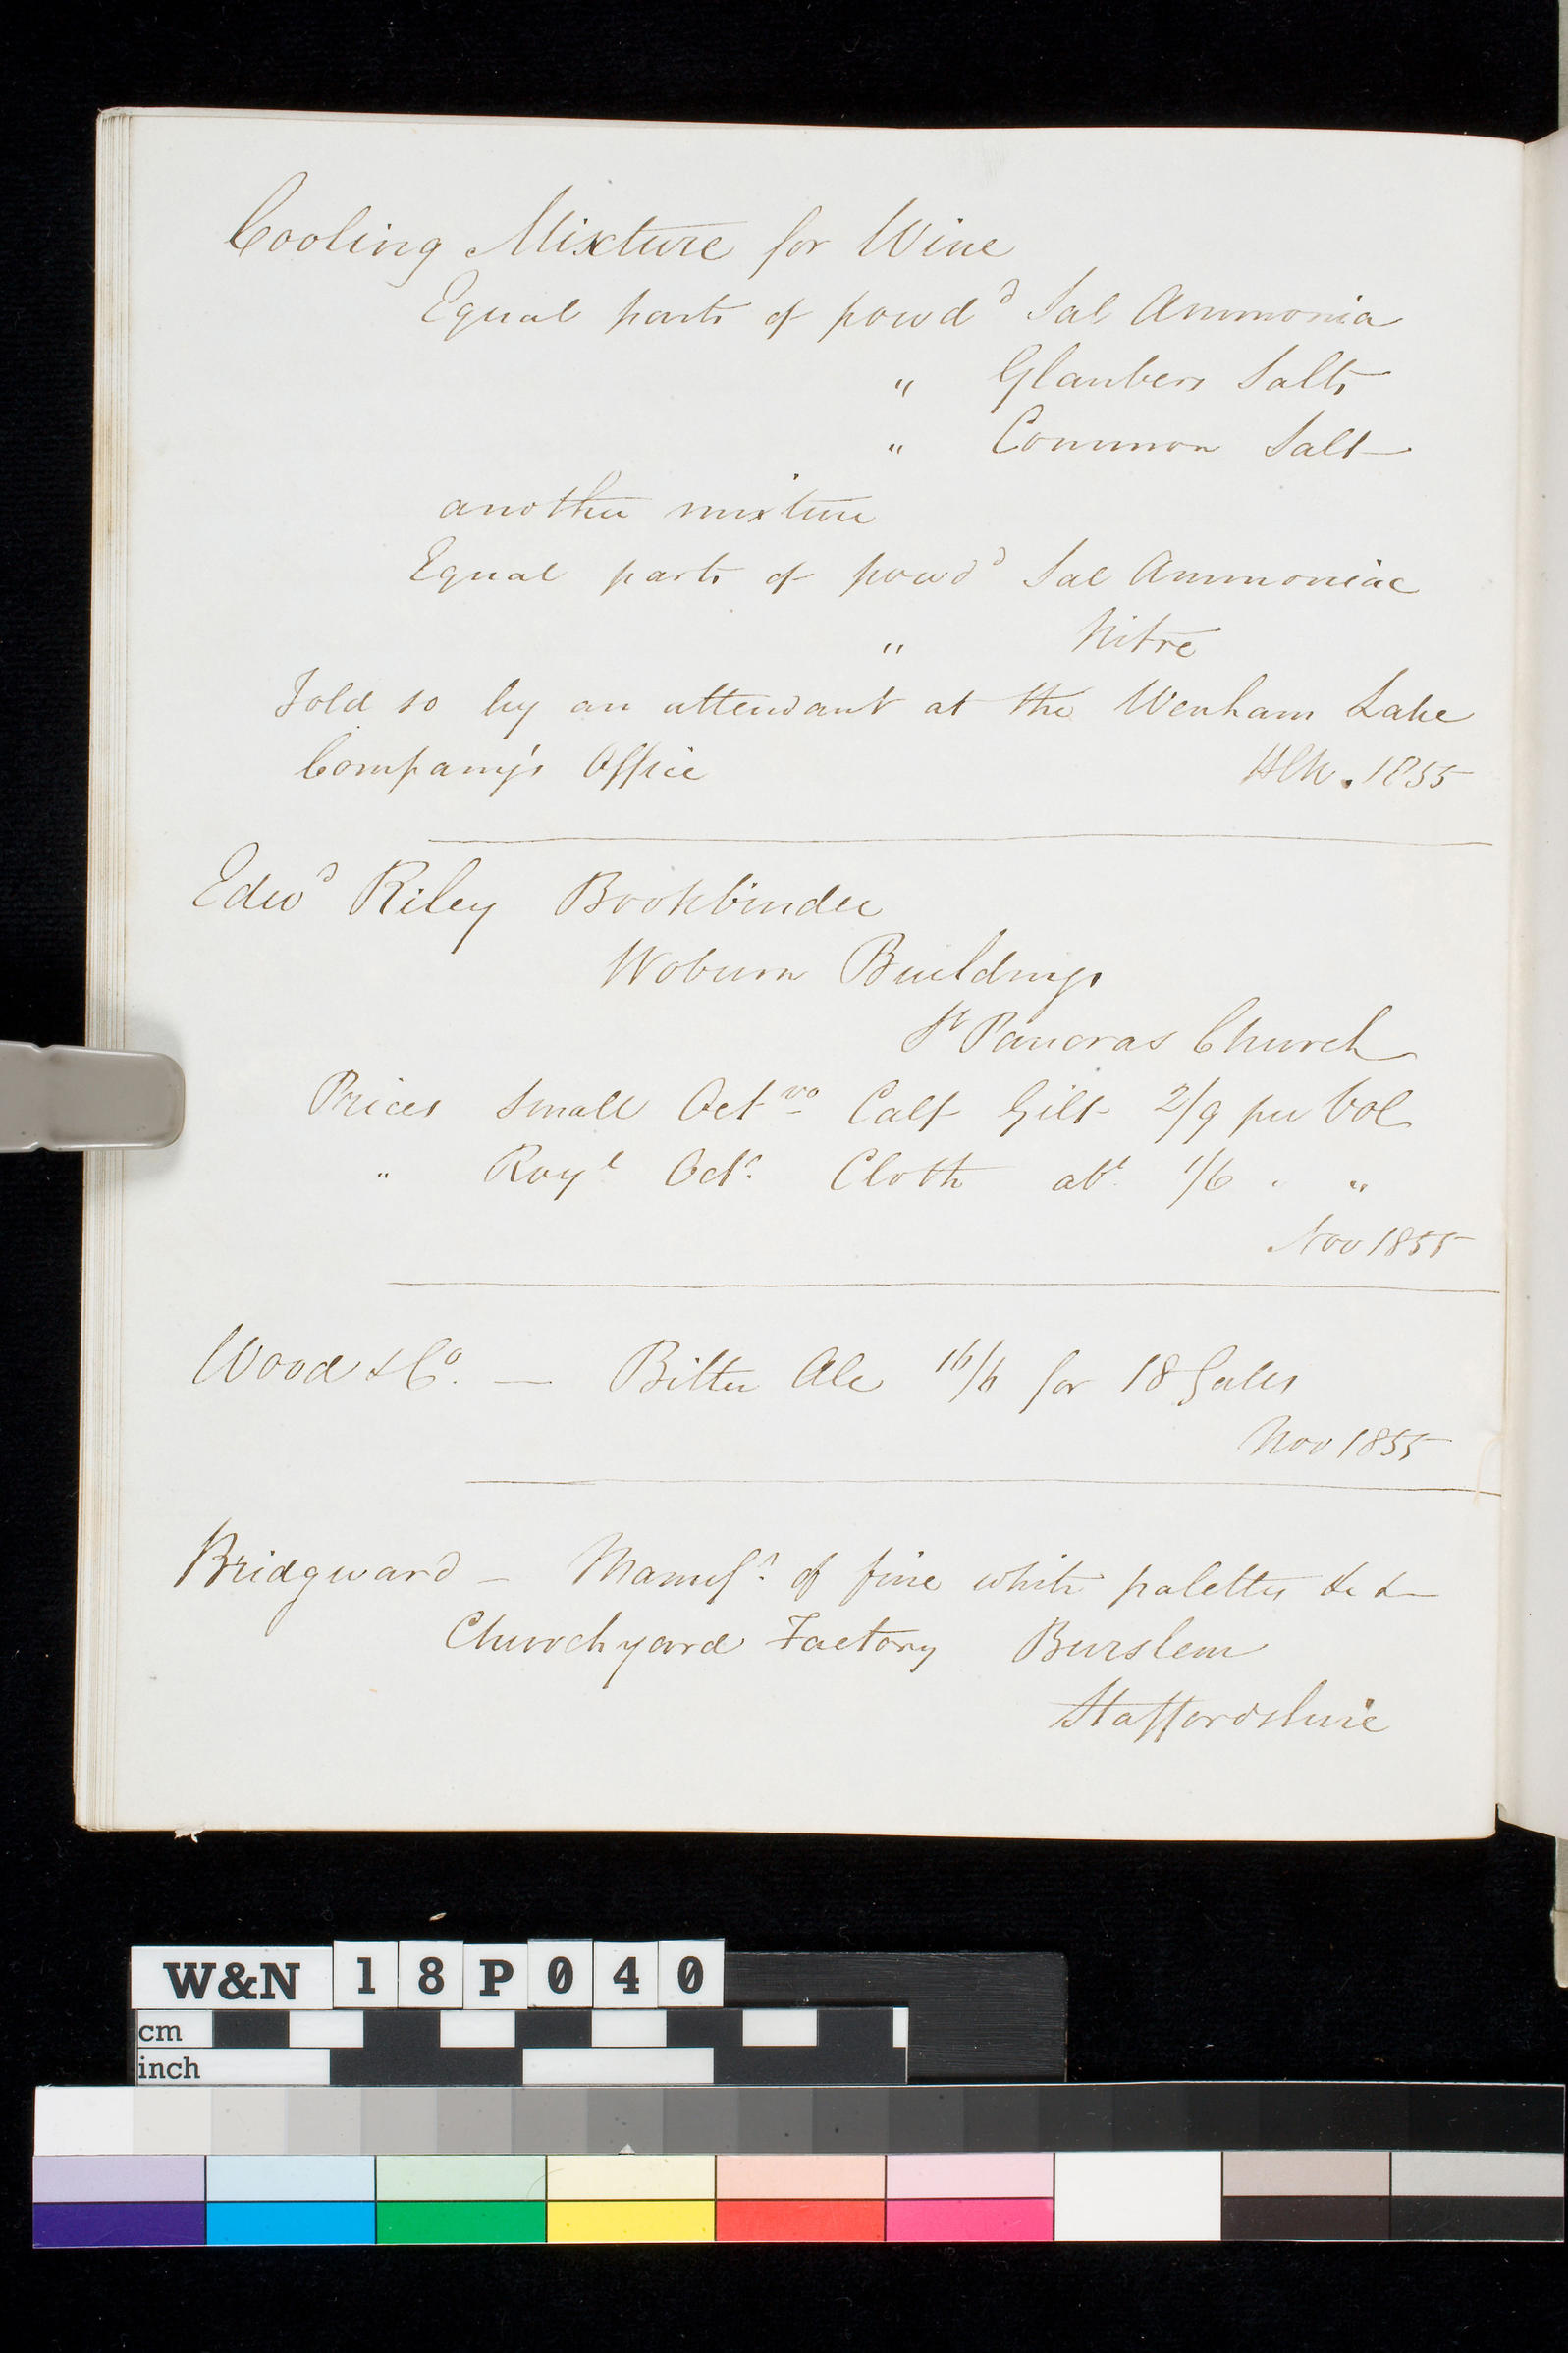 Cooling Mixture for Wine
Equal parts of powdd Sal Ammonia
" Glaubers Salts
" Common Salt
another mixture
Equal parts of powdd Sal Ammoniac
" Nitre
Told so by an attendant at the Wenham Lake
Company's Office 1855
Edwd Riley Bookbinder
Woburn Buildings
St Pancras Church
Prices small Octvo Calf Gilt 2/9 per Vol
" Royl Octo Cloth abt 1/6 " "
Nov 1855
Wood & Co. — Bitter Ale 16/6 for 18 Galls
Nov 1855
Bridgwood — Manufr of fine white palettes &c &c
Churchyard Factory Burslem
Staffordshire
W&N 18P040
cm
inch